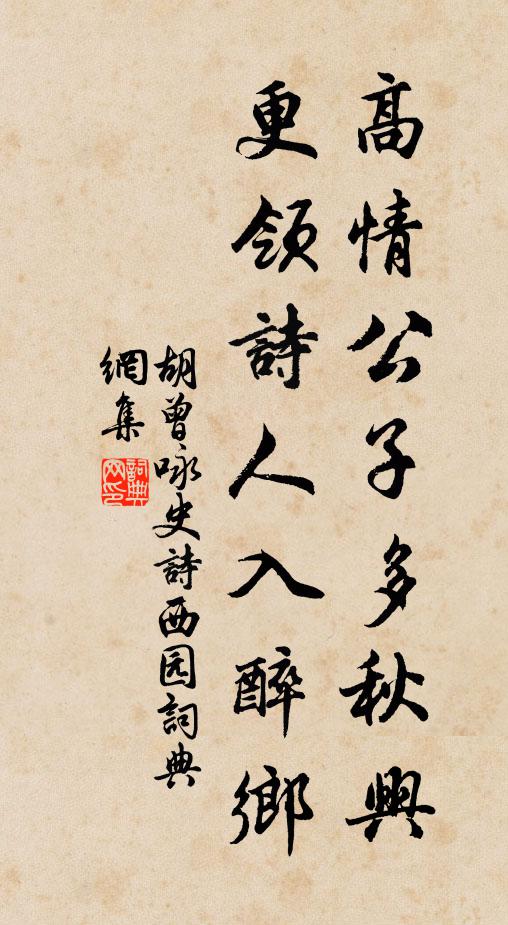 高情公子多秋興
更領詩人入醉鄉
胡曾咏史詩西园詞典
網集
詞典
网印